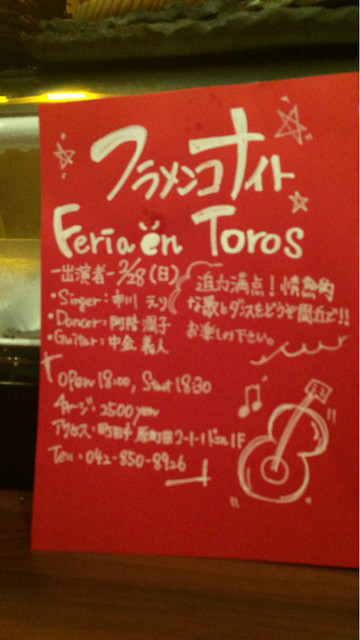 フラメンコナイト
Feria en Toros
ー出演者ー 2/28(日)
・Singer:市川 えり
・Dancer:阿陪 潤子
・Guitar:中金 義人
迫力満点!情熱的
な歌とダンスをどうぞ間近で!!
お楽しみ下さい。
Open 18:00, Start 18:30
チャージ:2500 yen
アクセス:町田市 原町田 1F
Tel:042-850-8926